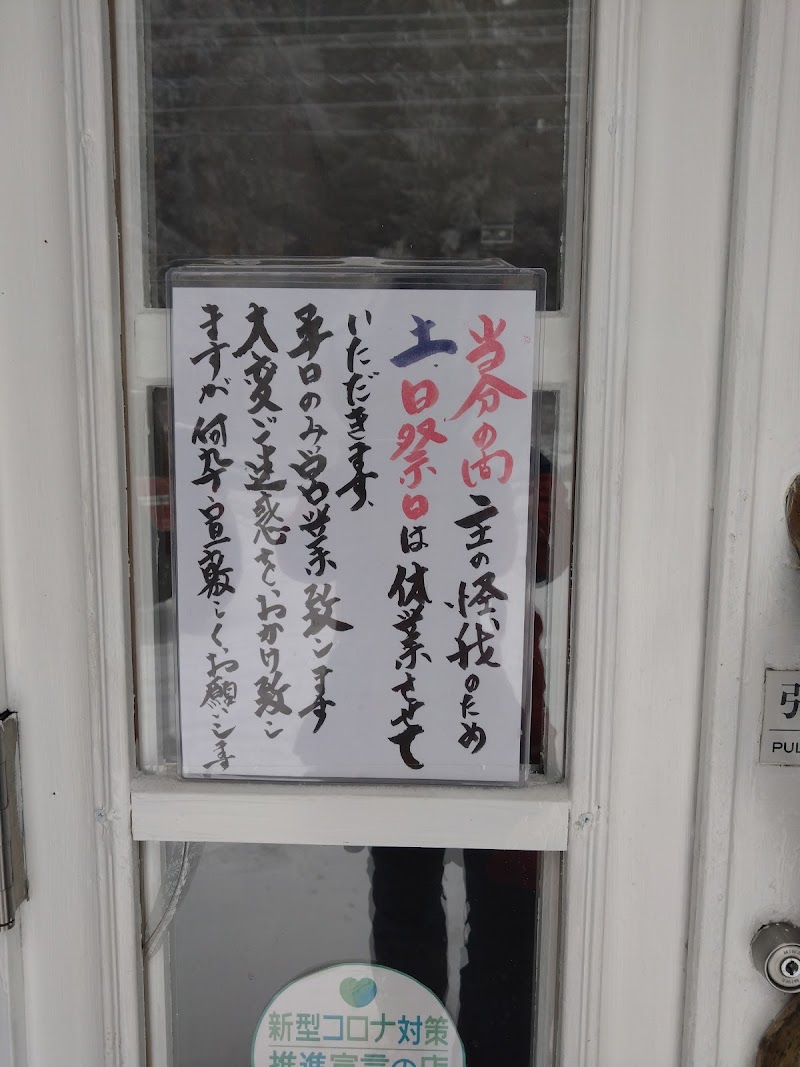 当分の間主の怪我のため
土日祭日は休業させて
いただきます、
平日のみ営業致します
大変ご迷惑を、おかけ致し
ますが何卒宜敷しくお願いします
引
PUL
新型コロナ対策
推進宣言の店